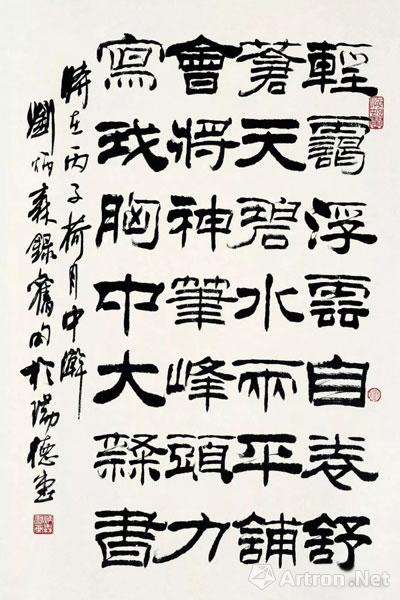 輕靄浮雲自卷舒
蒼天碧水兩平鋪
會將神筆峰頭力
寫我胸中大隸書
時在丙子荷月中澣
劉炳森錄舊句於瑞德堂
Artron.Net